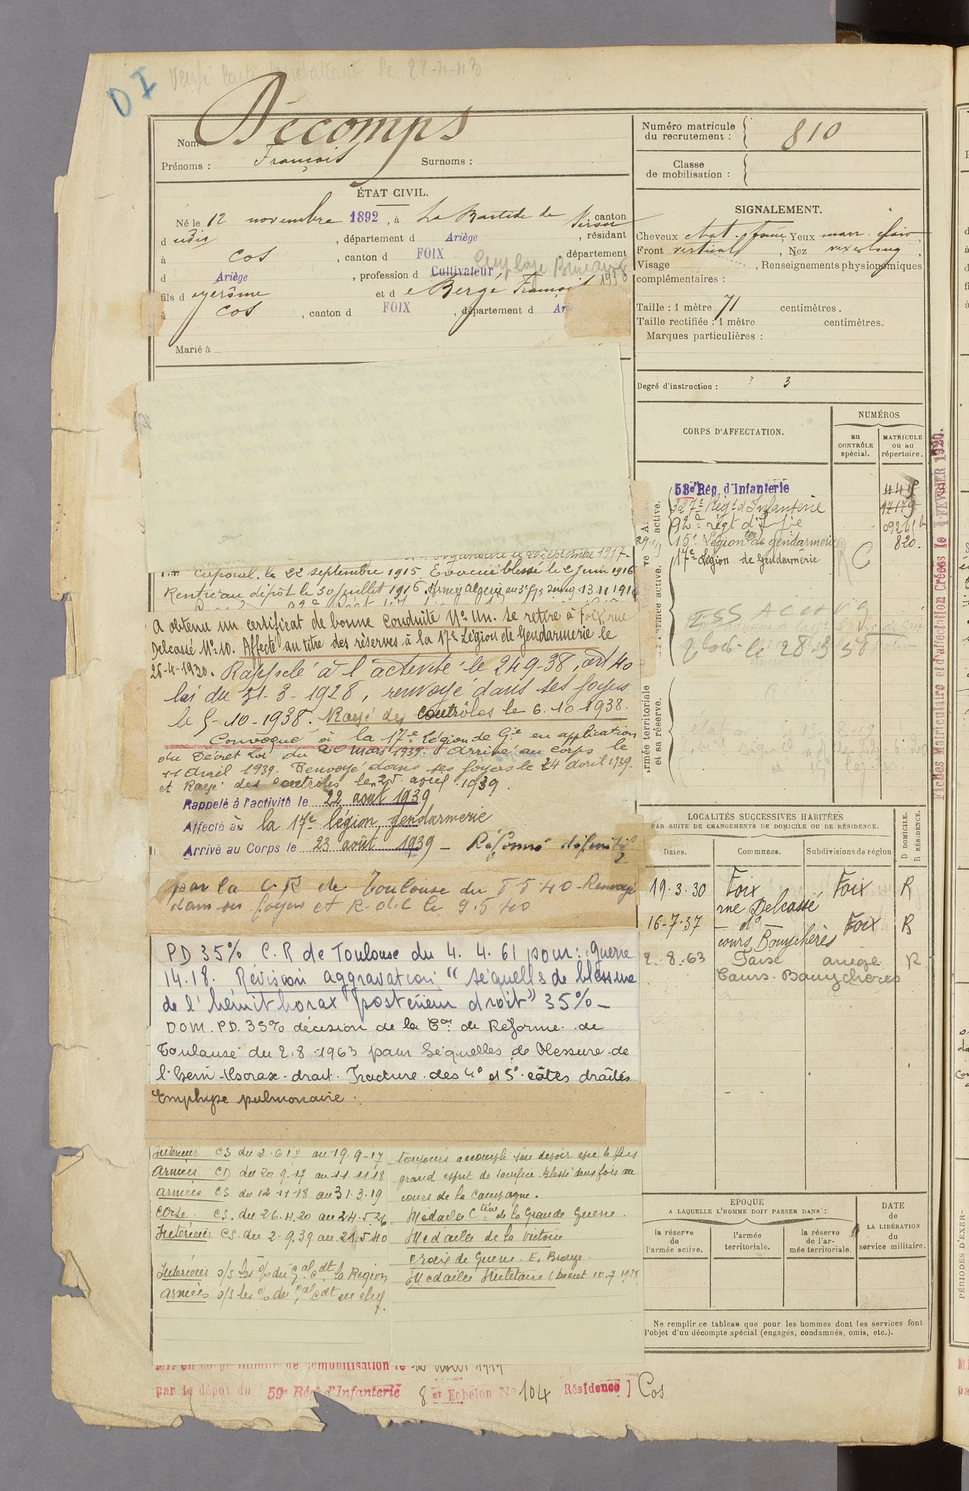 DI Versé Carte Combattant le 28-11-43
Nom Décomps
Prénoms : François Surnoms :
ÉTAT CIVIL.
Né le 12 novembre 1892, à La Bastide de Sérou, canton
d udis, département d Ariège, résidant
à Cos, canton d FOIX, département
d Ariège, profession d Cultivateur
1938
fils d e Jérôme et d e Berge Françoise
à Cos, canton d FOIX, département d Ar
Marié à
Caporal le 22 septembre 1915. Evacué blessé le 2 juin 1916
Rentré au dépôt le 30 juillet 1916
A obtenu un certificat de bonne conduite N° Un. Se retire à Foix, rue
Delcassé N° 10. Affecté au titre des réserves à la 17e Légion de Gendarmerie le
26-4-1930. Rappelé à l'activité le 24-9-38, art 40
loi du 31-3-1928, renvoyé dans ses foyers
le 5-10-1938. Rayé des contrôles le 6.10.1938.
Convoqué à la 17e Légion de Gie en application
du Décret Loi du 20 mars 1939. Arrivé au corps le
11 avril 1939. Renvoyé dans ses foyers le 24 avril 1939.
et Rayé des contrôles le 25 avril 1939.
Rappelé à l'activité le 22 août 1939
Affecté à la 17e légion gendarmerie
Arrivé au Corps le 23 août 1939 - Réformé définitif
par la C R de Toulouse du 8 5 40 - Renvoyé
dans ses foyers et R.d.C le 9.5.40
PD 35% C.R de Toulouse du 4.4.61 pour: guerre
14.18. Révision aggravation: "séquelles de blessure
de l'hémithorax postérieur droit" 35% -
DOM. P.D. 35% décision de la Con de Réforme de
Toulouse du 2.8.1963 pour séquelles de blessure de
l'hemi-thorax droit. Fracture des 4e et 5e côtes droites
Emphyse pulmonaire.
Intérieur CS du 2.6.17 au 19.9-17
Armées CD du 20.9.17 au 11.11.18
Armées CS du 12-11-18 au 31.3.19
Corse. CS. du 26.4.20 au 24.5.26
Intérieur CS du 2.9.39 au 21.5.40
Intérieur o/s les % du Gal Cdt la Région
Armées o/s les % du Gal Cdt en chef
toujours accompli son devoir avec le plus
grand esprit de sacrifice. Blessé deux fois au
cours de la campagne.
Médaille Ctive de la Grande Guerre.
Médaille de la Victoire
Croix de Guerre. E. Bronze
Médaille Militaire (Décret 10.7.1928
Mis en congé illimité de démobilisation le
par le dépôt du 59e Rég. d'Infanterie 8e Echelon N° 104 Résidence ) Cos
Numéro matricule
du recrutement : 810
Classe
de mobilisation :
SIGNALEMENT.
Cheveux chat. foncé, Yeux marr. clair
Front vertical, Nez
Visage , Renseignements physionomiques
complémentaires :
Taille : 1 mètre 71 centimètres.
Taille rectifiée : 1 mètre centimètres.
Marques particulières :
Degré d'instruction : 3
CORPS D'AFFECTATION.
NUMÉROS
au
CONTRÔLE
spécial.
MATRICULE
ou au
répertoire.
active.
53e Rég. d'Infanterie
Rég. d'Infanterie
92e régt d'Ifie
15e Légion de gendarmerie 820.
17e Légion de Gendarmerie R C
le 28
Armée territoriale
et sa réserve.
Fiches Matriculaire et d'affectation Créées le FEVRIER 1920.
LOCALITÉS SUCCESSIVES HABITÉES
PAR SUITE DE CHANGEMENTS DE DOMICILE OU DE RÉSIDENCE.
D DOMICILE.
R RÉSIDENCE.
Dates. Communes. Subdivisions de région
19.3.30 Foix Foix R
rue Delcassé
16-7-37 - do - Foix R
cours Bouychères
2.8.63 Foix ariège R
Cours Bouychères
EPOQUE
A LAQUELLE L'HOMME DOIT PASSER DANS :
la réserve
de
l'armée active.
l'armée
territoriale.
la réserve
de l'ar-
mée territoriale.
DATE
de
LA LIBÉRATION
du
service militaire.
Ne remplir ce tableau que pour les hommes dont les services font
l'objet d'un décompte spécial (engagés, condamnés, omis, etc.).
PÉRIODES D'EXER-